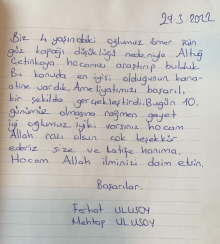 29.3.2022
Biz 4 yaşındaki oğlumuz Ömer için
göz kapağı düşüklüğü nedeniyle Altuğ
Çetinkaya hocamızı araştırıp bulduk.
Bu konuda en iyisi olduğunun kana-
atine vardık. Ameliyatımızı başarılı
bir şekilde gerçekleştirdi. Bugün 10.
günümüz olmasına rağmen gayet
iyi oğlumuz. İyiki varsınız hocam
Allah razı olsun çok teşekkür
ederiz size ve Latife hanıma.
Hocam Allah ilminizi daim etsin.
Başarılar.
Ferhat ULUSOY
Mehtap ULUSOY